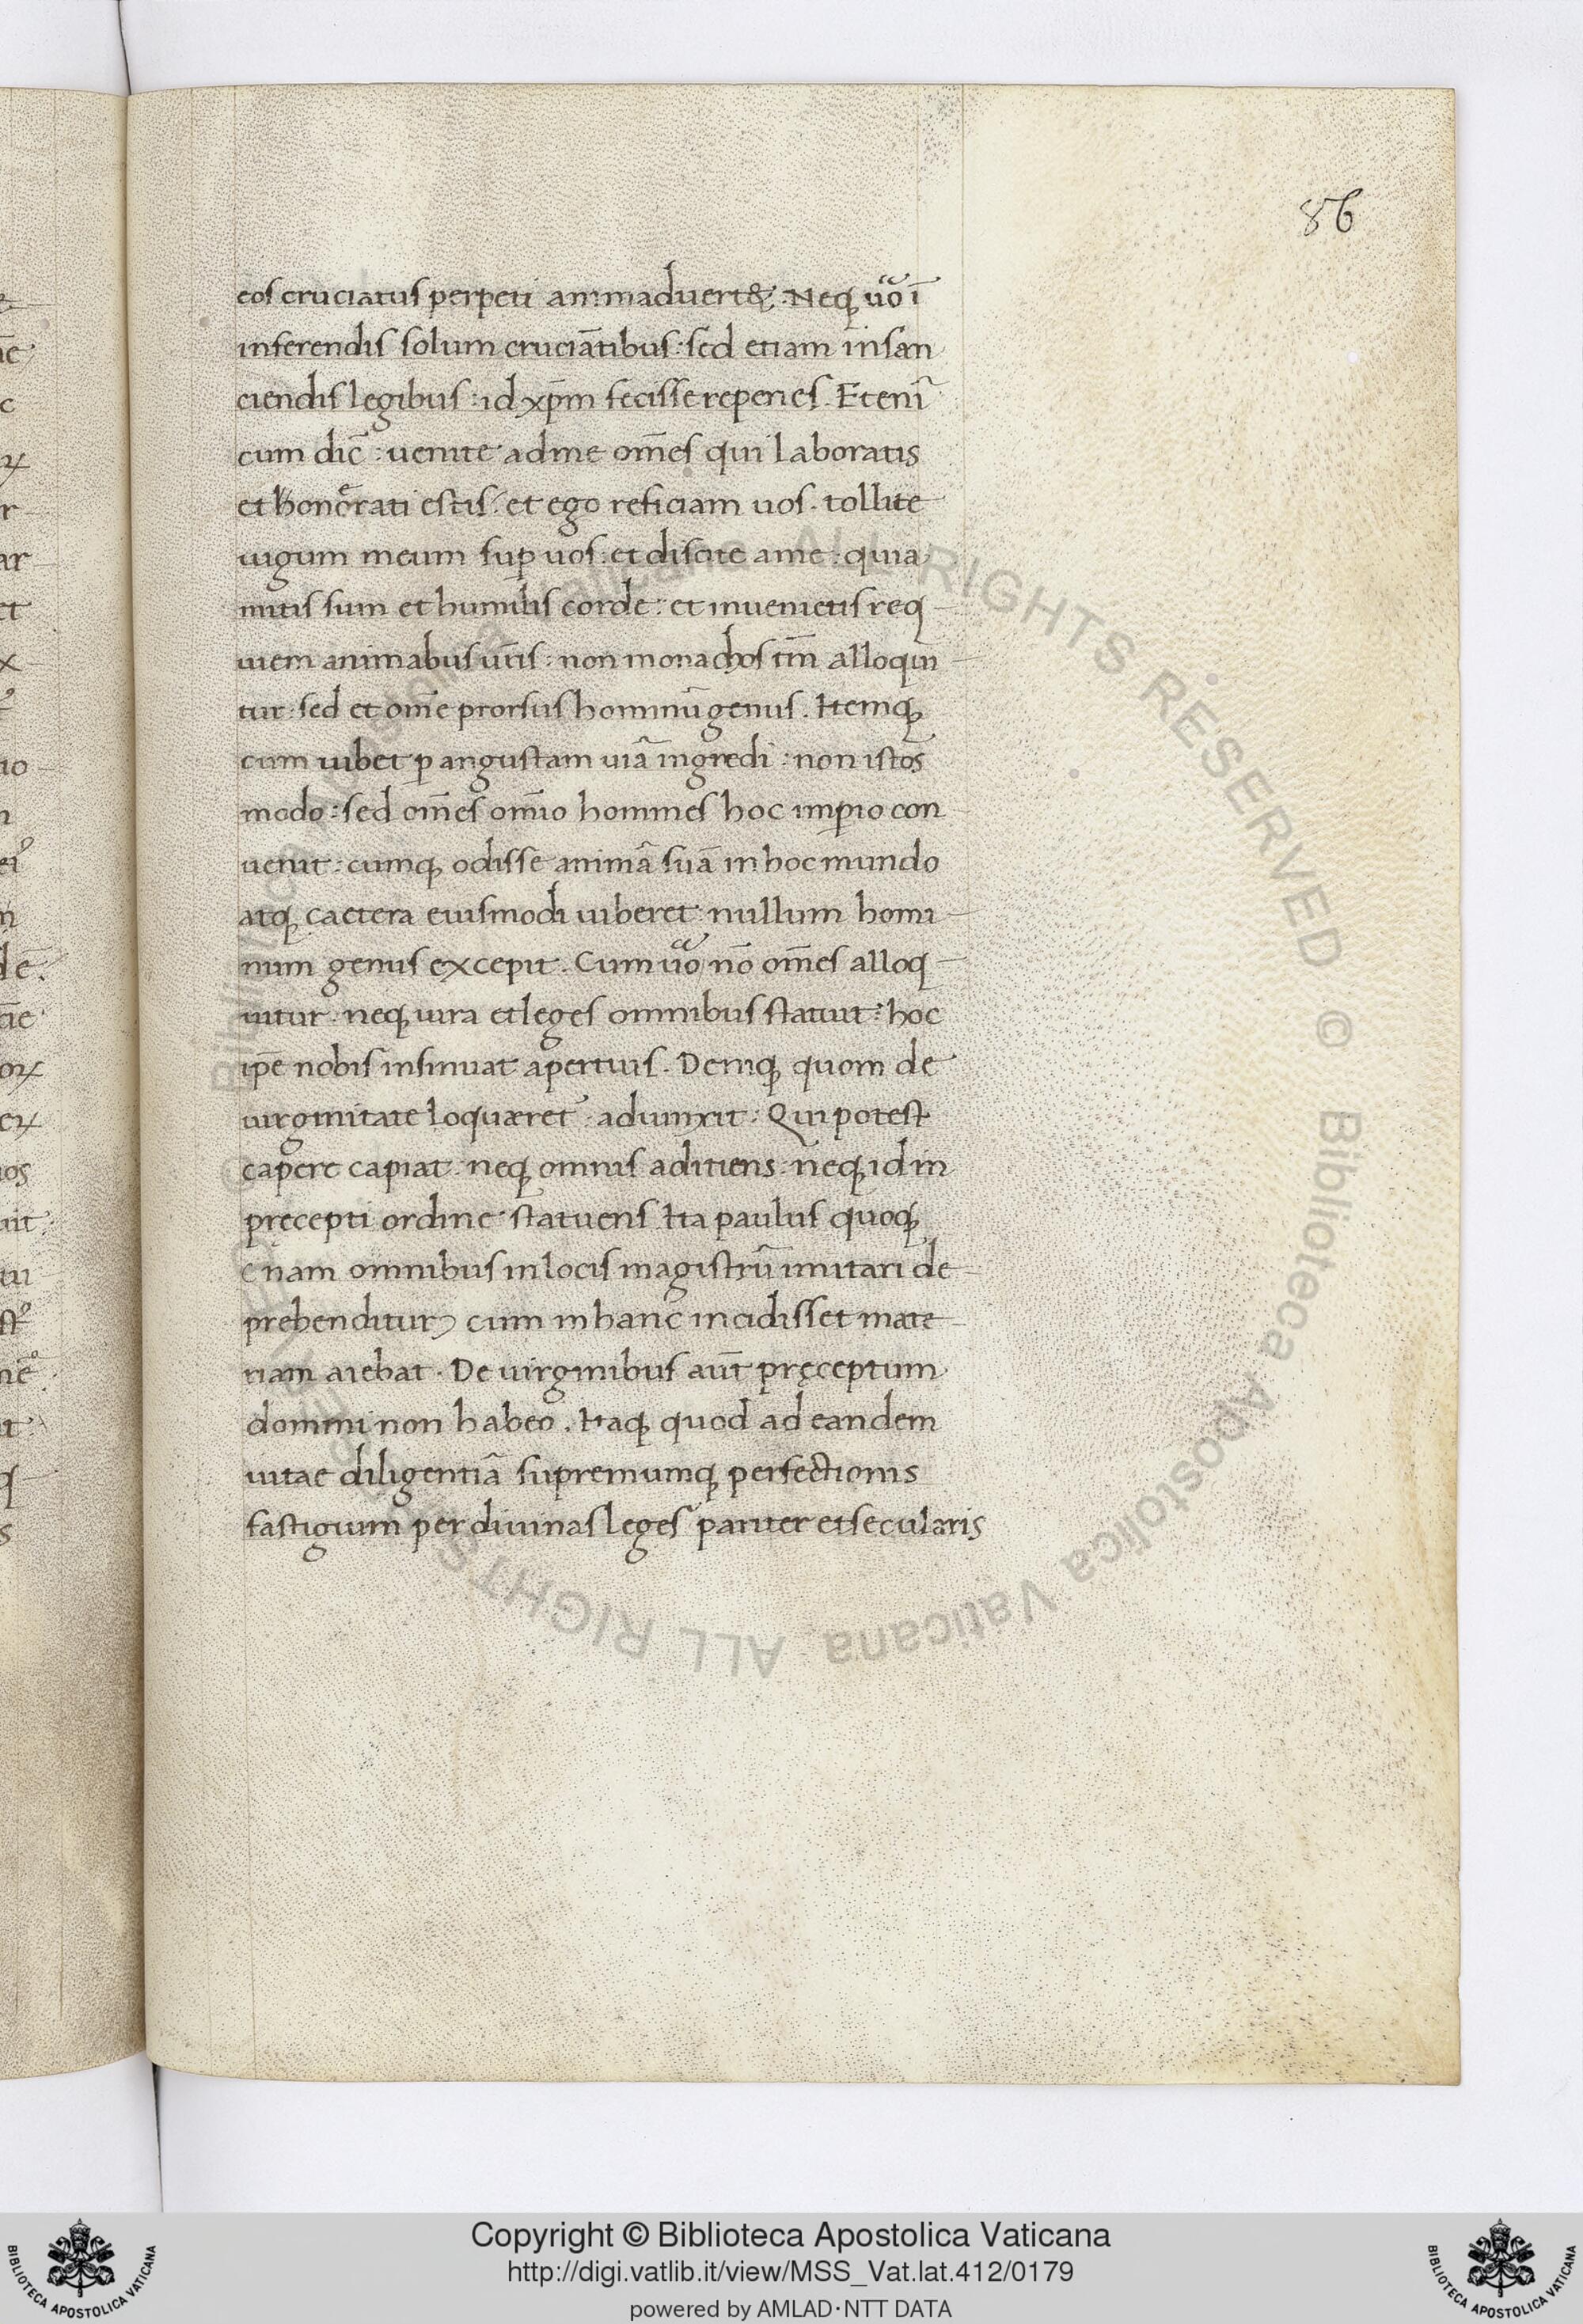 86
eos cruciatus perpeti animaduert&. Neq; uo i
inferendis solum cruciātibus: sed etiam insan
ciendis legibus: id xp̄m fecisse reperies. Etenī
cum dic̄: uenite ad me om̄es qui laboratis
et honorati estis: et ego reficiam uos. tollite
iugum meum sup uos: et discite a me: quia
mitis sum et humilis corde: et inuenietis req
uiem animabus ur̄is: non monachos tm̄ alloqui
tur: sed et om̄e prorsus hominū genus. Itemq;
cum iubet p angustam uiā ingredi: non istos
modo: sed om̄es om̄io homines hoc impio con
uenit: cumq; odisse animā suā in hoc mundo
atq; caetera eiusmodi iuberet: nullum homi
num genus excepit. Cum uo nō om̄es alloq
uitur: neq; iura et leges omnibus statuit: hoc
ip̄e nobis insinuat apertius. Deniq; quom de
uirginitate loquæret: adiunxit: Qui potest
capere capiat: neq; omnis aditiens: neq; id in
pręcepti ordine statuens. Ita paulus quoq;
enam omnibus in locis magistrū imitari de
prehenditur, cum in hanc incidisset mate
riam aiebat. De uirginibus aut̄ pręceptum
domini non habeo. Itaq; quod ad eandem
uitae diligentiā supremumq; perfectionis
fastigium per diuinas leges pariter et secularis
Copyright © Biblioteca Apostolica Vaticana
http://digi.vatlib.it/view/MSS_Vat.lat.412/0179
powered by AMLAD·NTT DATA